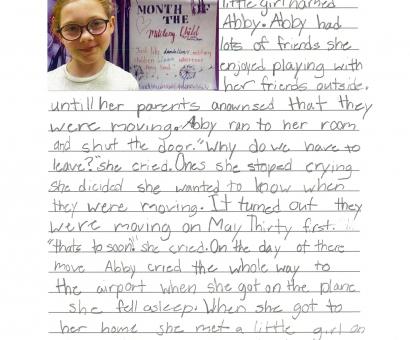 MONTH OF
THE
Military Child
Just like dandelions, military
children bloom wherever
little girl named
Abby. Abby had
lots of friends she
enjoyed playing with
her friends outside.
untill her parents anawnsed that they
were moving. Abby ran to her room
and shut the door. "Why do we have to
leave?" she cried. Ones she stoped crying
she dicided she wanted to know when
they were moving. It turned out they
were moving on May Thirty first.
"thats to soon!" she cried. On the day of there
move Abby cried the whole way to
the airport when she got on the plane
she fell asleep. When she got to
her home she met a little girl on